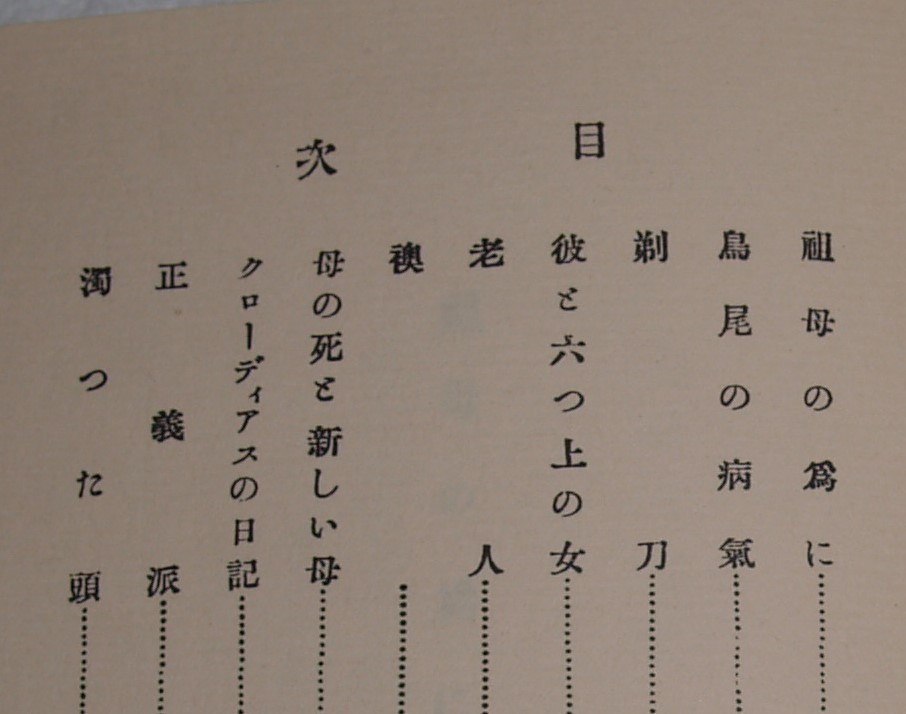 目次
祖母の爲に
鳥尾の病氣
剃刀
彼と六つ上の女
老人
襖
母の死と新しい母
クローディアスの日記
正義派
濁つた頭